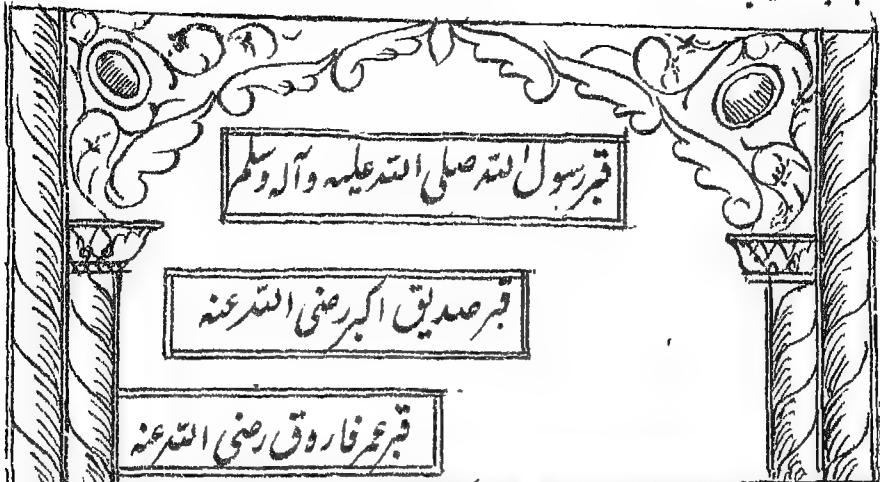 قبر رسول اللہ صلی اللہ علیہ وآلہ وسلم
قبر صدیق اکبر رضی اللہ عنہ
قبر عمر فاروق رضی اللہ عنہ